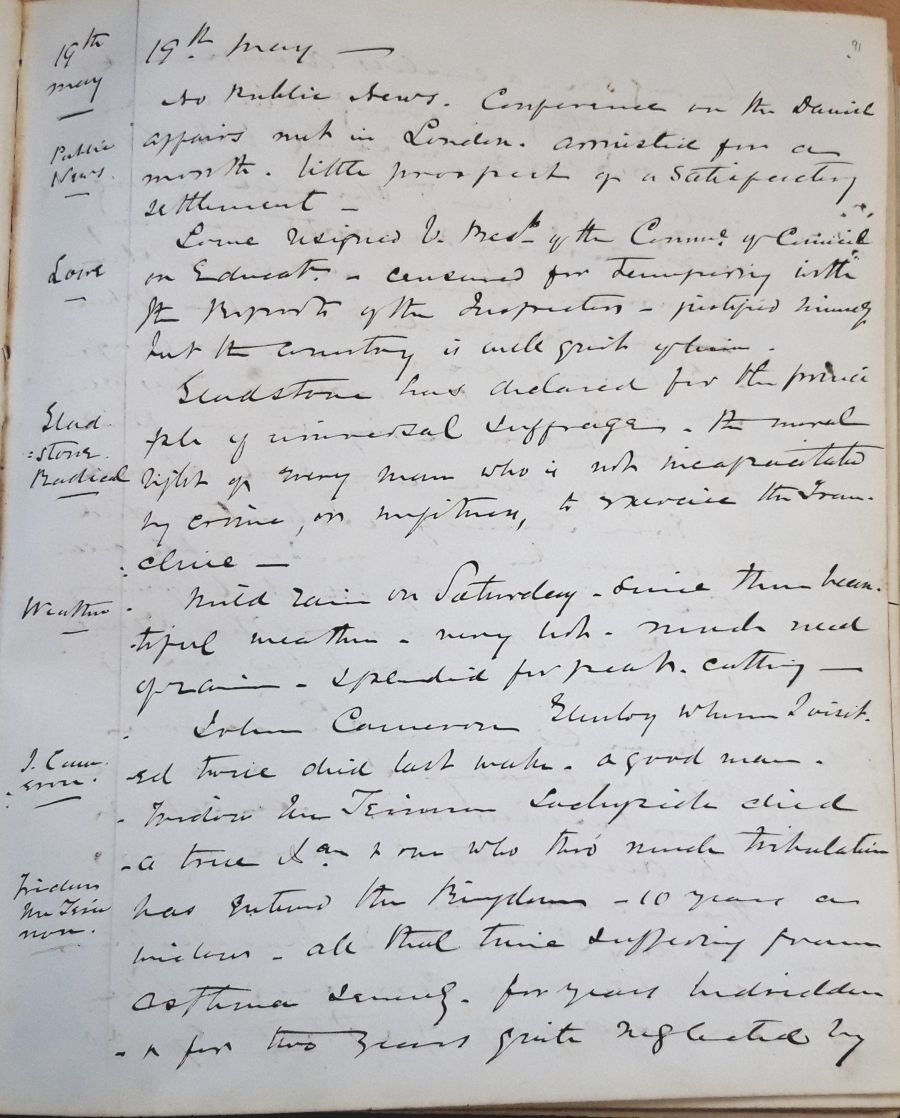 91
19th May
19th May —
No Public News. Conference on the Danish
Public News.
affairs met in London. armistice for a
month. little prospect of a Satisfactory
settlement —
Lowe
Lowe resigned V. Prest. of the Commee. of Council
on Educatn. - censured for Tampering with
the Reports of the Inspectors - justified himself
but the country is well quit of him.
Glad-
=stone.
Radical
Gladstone has declared for the princi
ple of universal suffrage. - the moral
right of every man who is not incapacitated
by crime, or unfitness, to exercise the Fran-
chise —
Weather
Mild rain on Saturday - since then beau-
tiful weather - very hot. much need
of rain - splendid for peat. cutting —
J. Cam-
eron.
John Cameron whom I visit-
ed twice died last week. a good man.
Widow
Mc Kin
non.
Widow Mc Kinnon died
- a true Xan & one who thro' much tribulation
has entered the Kingdom - 10 years a
widow - all that time suffering from
asthma. for years bedridden
- & for two years quite neglected by